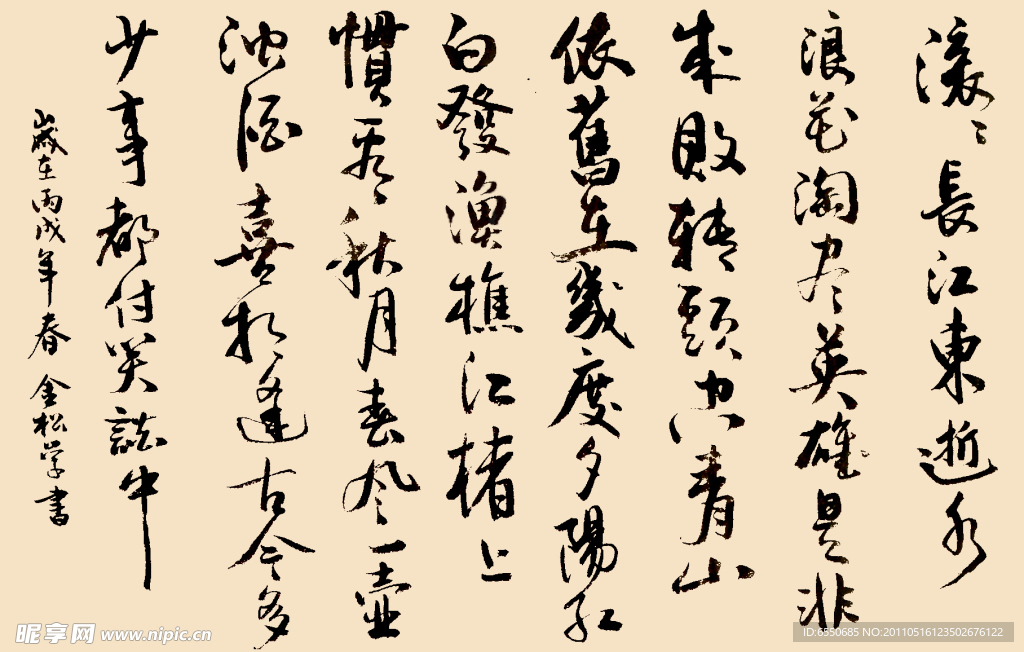 滚〻長江東逝水
浪花淘尽英雄是非
成敗转頭空青山
依舊在幾度夕陽红
白發渔樵江楮上
惯看秋月春风一壶
浊酒喜相逢古今多
少事都付笑談中
歲在丙戌年春 金松学書
昵享网 www.nipic.cn
ID:6350685 NO:20110516123502676122